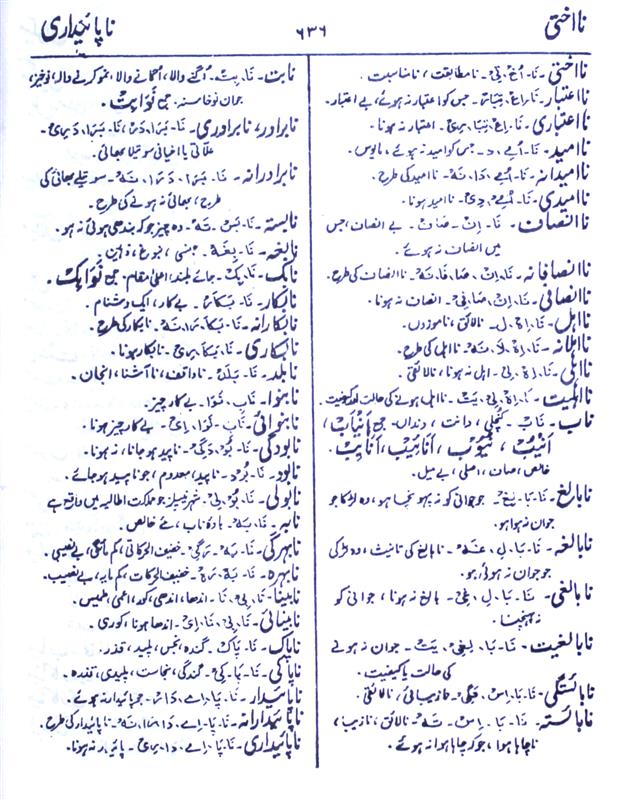 نااختی
۶۳۶
ناپائیداری
نااختی۔ نَا۔اُخ۔تِی۔ نامطابقت، نامناسبت۔
نااعتبار۔ نَا۔اِع۔تِبَار۔ جس کو اعتبار نہ ہوئے، بے اعتبار۔
نااعتباری۔ نَا۔اِع۔تِبَا۔رِی۔ اعتبار نہ ہونا۔
ناامید۔ نَا۔اُمے۔د۔ جس کو امید نہ ہوئے، مایوس۔
ناامیدانہ۔ نَا۔اُمے۔دَا۔نَہ۔ ناامید کی طرح۔
ناامیدی۔ نَا۔اُمے۔دِی۔ ناامید ہونا۔
ناانصاف۔ نَا۔اِن۔صَاف۔ بے انصاف، جس
میں انصاف نہ ہوئے۔
ناانصافانہ۔ نَا۔اِن۔صَا۔فَا۔نَہ۔ ناانصاف کی طرح۔
ناانصافی۔ نَا۔اِن۔صَا۔فِی۔ انصاف نہ ہونا۔
نااہل۔ نَا۔اِہ۔ل۔ نالائق، ناموزوں۔
نااہلانہ۔ نَا۔اِہ۔لَا۔نَہ۔ نااہل کی طرح۔
نااہلی۔ نَا۔اِہ۔لِی۔ اہل نہ ہونا، نالائقی۔
نااہلیت۔ نَا۔اِہ۔لِی۔یَت۔ نااہل ہونے کی حالت اور کیفیت۔
ناب۔ نَاب۔ کُچلی، دانت، دنداں۔ جمع اَنیَاب،
اَنیُب، نُیُوب، اَنَائِیب، اَنَایِب۔
خالص، صاف، اصلی، بے میل۔
نابالغ۔ نَا۔بَا۔لِغ۔ جو جوانی کو نہ پہونچا ہو، وہ لڑکا جو
جوان نہ ہوا ہو۔
نابالغہ۔ نَا۔بَا۔لِ۔غَہ۔ نابالغ کی تانیث، وہ لڑکی
جو جوان نہ ہوئی ہو۔
نابالغی۔ نَا۔بَا۔لِ۔غِی۔ بالغ نہ ہونا، جوانی کو
نہ پہنچنا۔
نابالغیت۔ نَا۔بَا۔لِغِی۔یَت۔ جوان نہ ہونے
کی حالت یا کیفیت۔
نابائستگی۔ نَا۔بَا۔اِس۔تَگِی۔ نازیبائی، نالائقی۔
نابائستہ۔ نَا۔بَا۔اِس۔تَہ۔ نالائق، نازیب،
ناچاہا ہوا، جو کہ چاہا ہوا نہ ہوئے۔
نابت۔ نَا۔بِت۔ اُگنے والا، اُگانے والا، نمو کرنے والا، نوخیز،
جوان نوخاستہ۔ جمع نَوَابِت۔
نابرادر، نابرادری۔ نَا۔بَرَا۔دَر، نَا۔بَرَا۔دَرِی۔
علاتی یا اخیانی سوتیلا بھائی۔
نابرادرانہ۔ نَا۔بَرَا۔دَرَا۔نَہ۔ سوتیلے بھائی کی
طرح، بھائی نہ ہونے کی طرح۔
نابستہ۔ نَا۔بَس۔تَہ۔ وہ چیز جو کہ بندھی ہوئی نہ ہو۔
نابغہ۔ نَا۔بِغَہ۔ ذہین۔
نابک۔ نَا۔بِک۔ جائے بلند، اعلیٰ مقام۔ جمع نَوَابِک۔
نابکار۔ نَا۔بَکَار۔ بے کار، ایک دشنام۔
نابکارانہ۔ نَا۔بَکَا۔رَا۔نَہ۔ نابکار کی طرح۔
نابکاری۔ نَا۔بَکَا۔رِی۔ نابکار ہونا۔
نابلد۔ نَا۔بَلَد۔ ناواقف، ناآشنا، انجان۔
نابنوا۔ نَابِ۔نَوَا۔ بے کار چیز۔
نابنوائی۔ نَابِ۔نَوَا۔اِی۔ بے کار چیز ہونا۔
نابودگی۔ نَا۔بُو۔دَگِی۔ ناپید ہو جانا، نہ ہونا۔
نابود۔ نَا۔بُود۔ ناپید، معدوم، جو ناپید ہو جائے۔
نابولی۔ نَا۔بُو۔لِی۔ شہر نیپلز جو مملکت اطالیہ میں واقع ہے
نابہ۔ نَا۔بَہ۔ بادۂ ناب، مے خالص۔
نابہرگی۔ نَا۔بَہ۔رَگِی۔ خفیف الحرکاتی، کم مائگی، بے نصیبی۔
نابہرہ۔ نَا۔بَہ۔رَہ۔ خفیف الحرکات، کم مایہ، بے نصیب۔
نابینا۔ نَا۔بِی۔نَا۔ اندھا، اندھی، کور، اعمیٰ،
نابینائی۔ نَا۔بِی۔نَا۔اِی۔ اندھا ہونا، کوری۔
ناپاک۔ نَا۔پَاک۔ گندہ، نجس، پلید، قذر۔
ناپاکی۔ نَا۔پَا۔کِی۔ گندگی، نجاست، پلیدی،
ناپائیدار۔ نَا۔پَا۔اِے۔دَار۔ جو پائیدار نہ ہوئے۔
ناپائیدارانہ۔ نَا۔پَا۔اِے۔دَا۔رَا۔نَہ۔ ناپائیدار کی طرح۔
ناپائیداری۔ نَا۔پَا۔اِے۔دَا۔رِی۔ پائیدار نہ ہونا۔